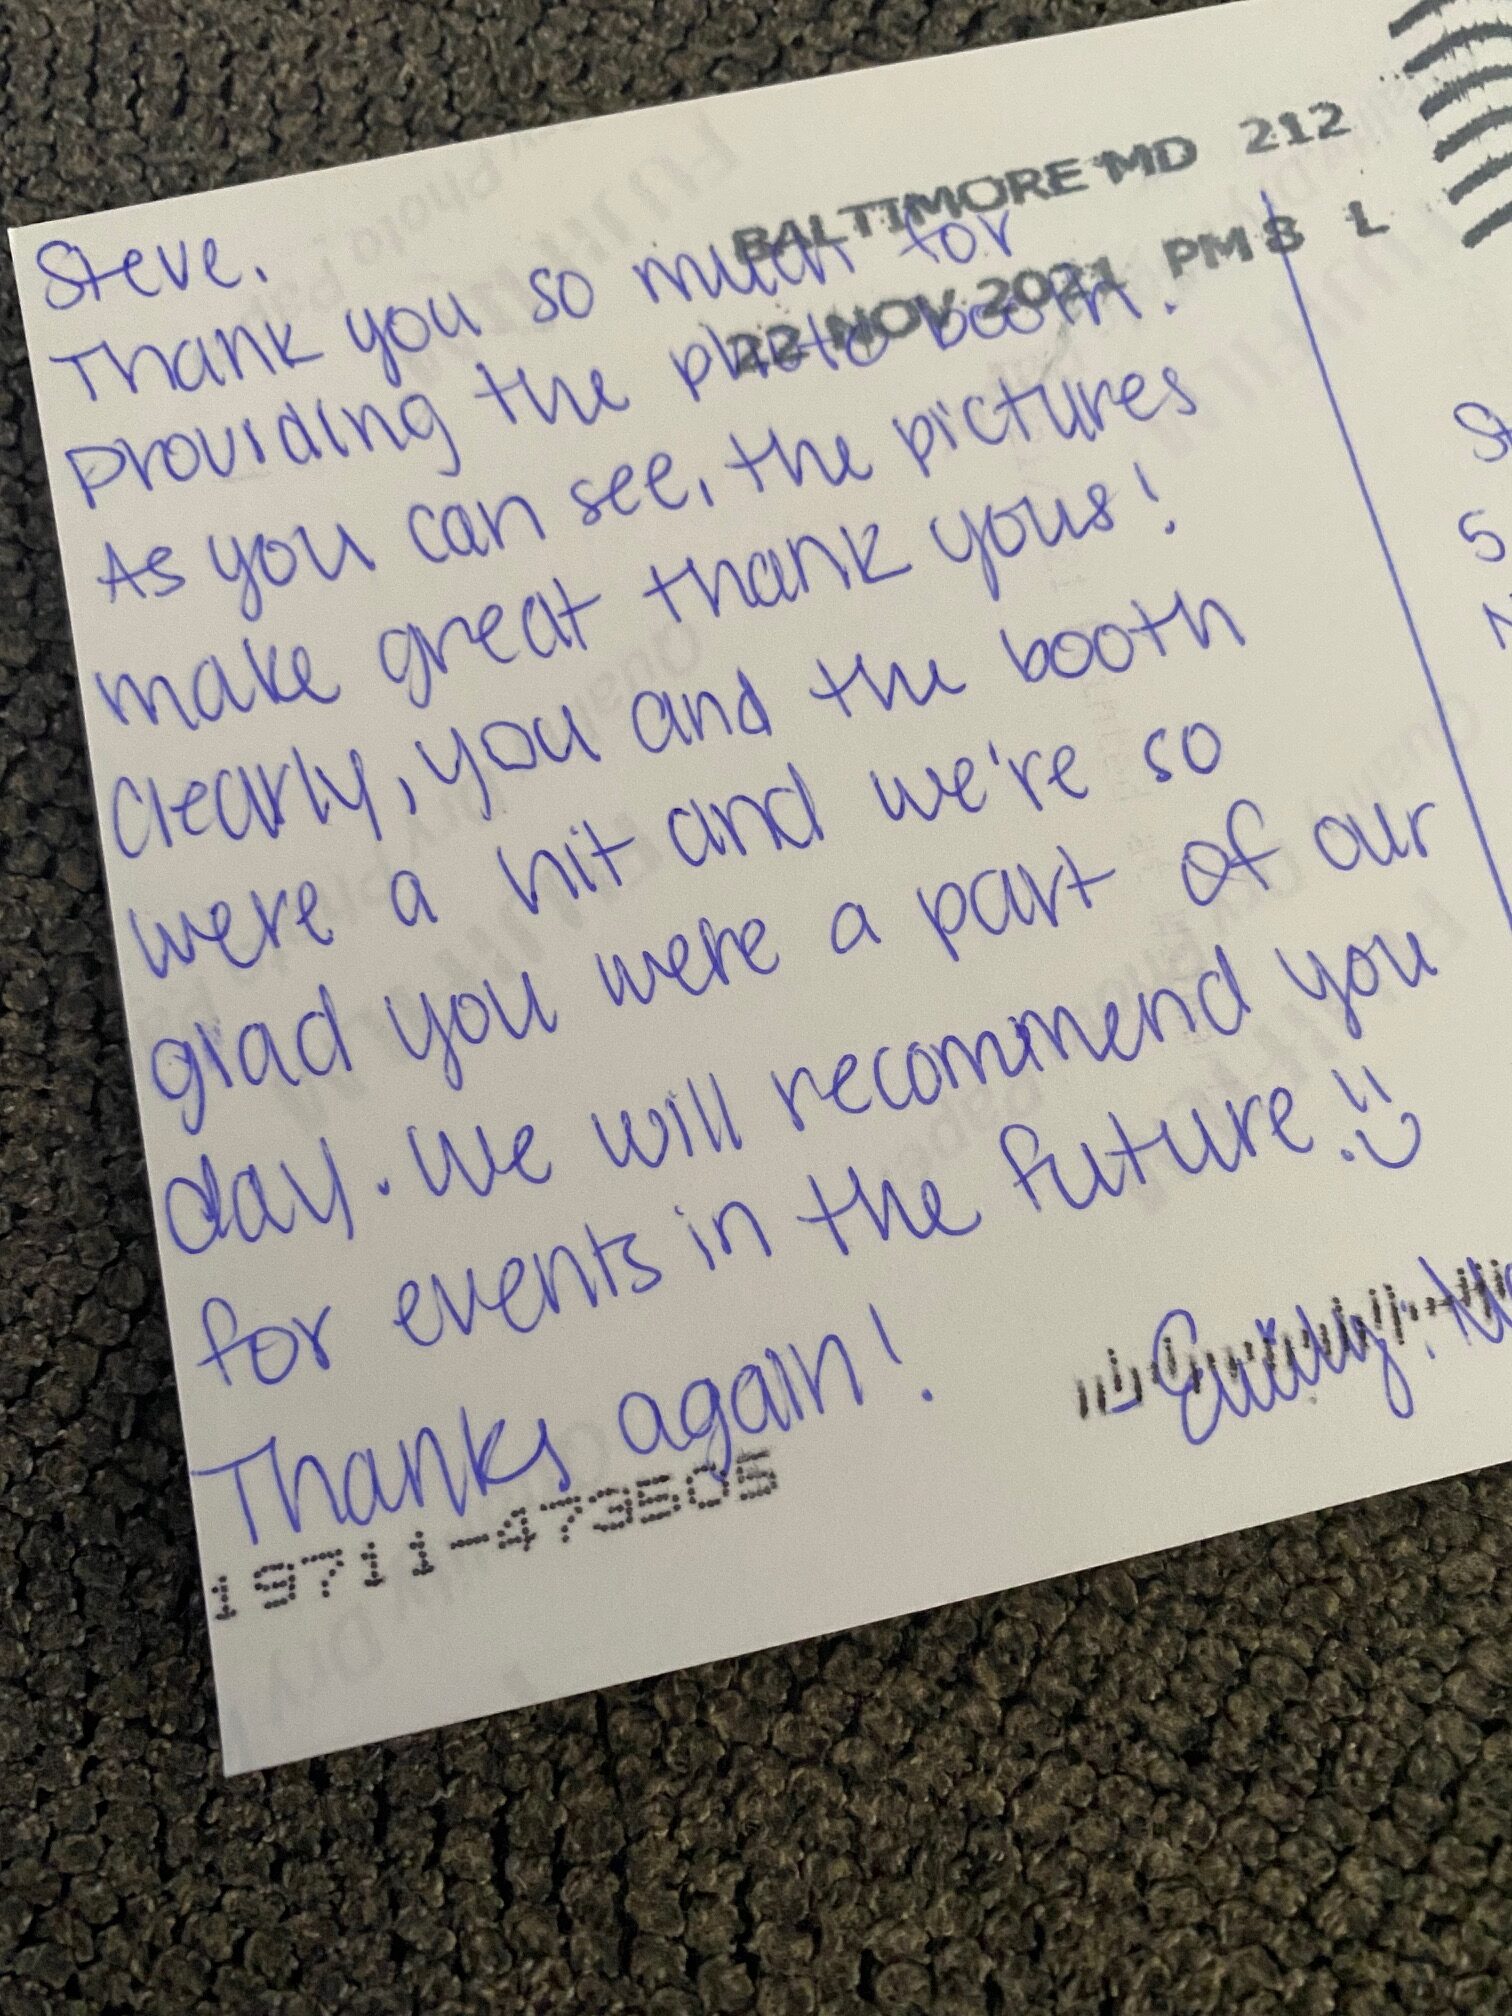 BALTIMORE MD 212
22 NOV 2021 PM 8 L
Steve.
Thank you so much for
providing the photo booth.
As you can see, the pictures
make great thank yous!
Clearly, you and the booth
were a hit and we're so
glad you were a part of our
day. We will recommend you
for events in the future. :)
Thanks again!
- Emily
19711-473505
St
5
N